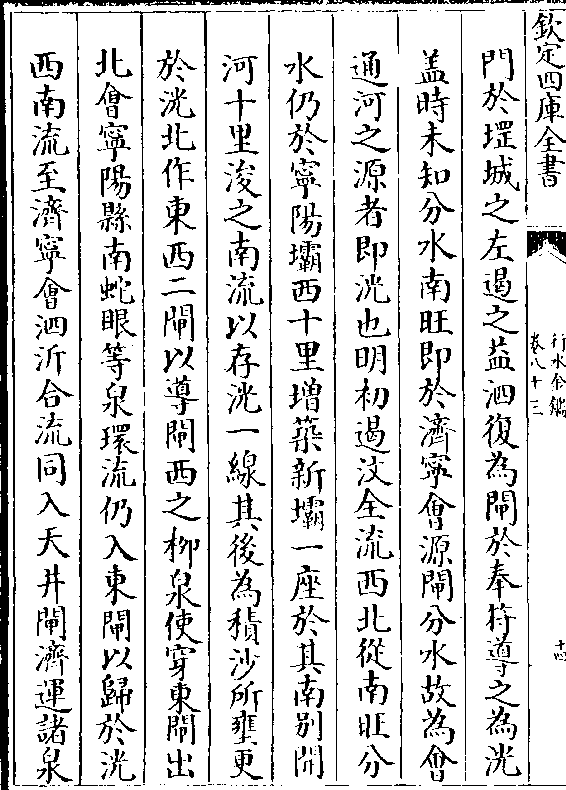 欽定四庫全書
行水金鑑
卷八十三
十四
門於堽城之左遏之益泗復為閘於奉符導之為洸
葢時未知分水南旺即於濟寧會源閘分水故為會
通河之源者即洸也明初遏汶全流西北從南旺分
水仍於寧陽壩西十里増築新壩一座於其南别開
河十里浚之南流以存洸一線其後為積沙所壅更
於洸北作東西二閘以導閘西之柳泉使穿東閘出
北會寧陽縣南蛇眼等泉環流仍入東閘以歸於洸
西南流至濟寧會泗沂合流同入天井閘濟運諸泉